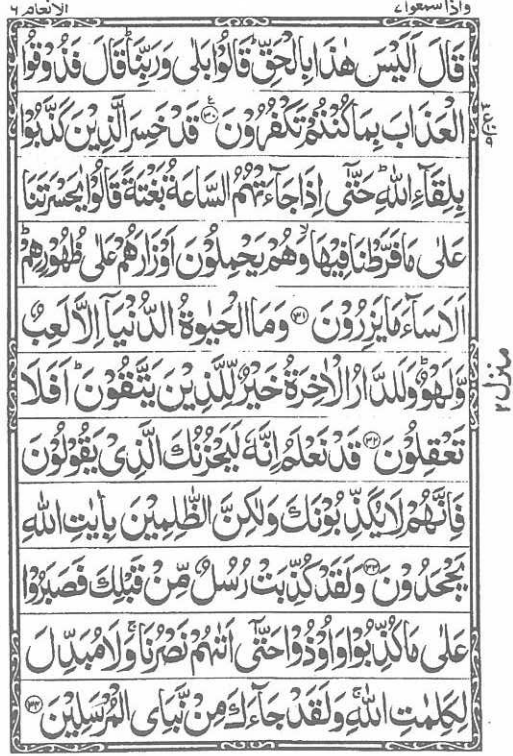 واذا سمعوا ٧
الانعام ٦
قَالَ اَلَيْسَ هٰذَا بِالْحَقِّ ؕ قَالُوْا بَلٰى وَرَبِّنَا ؕ قَالَ فَذُوْقُوا
الْعَذَابَ بِمَا كُنْتُمْ تَكْفُرُوْنَ ۳۰ ع قَدْ خَسِرَ الَّذِيْنَ كَذَّبُوْا
بِلِقَآءِ اللّٰهِ ؕ حَتّٰۤى اِذَا جَآءَتْهُمُ السَّاعَةُ بَغْتَةً قَالُوْا يٰحَسْرَتَنَا
عَلٰى مَا فَرَّطْنَا فِيْهَا ۙ وَهُمْ يَحْمِلُوْنَ اَوْزَارَهُمْ عَلٰى ظُهُوْرِهِمْ ؕ
اَلَا سَآءَ مَا يَزِرُوْنَ ۳۱ وَمَا الْحَيٰوةُ الدُّنْيَاۤ اِلَّا لَعِبٌ
وَّلَهْوٌ ؕ وَلَلدَّارُ الْاٰخِرَةُ خَيْرٌ لِّلَّذِيْنَ يَتَّقُوْنَ ؕ اَفَلَا
تَعْقِلُوْنَ ۳۲ قَدْ نَعْلَمُ اِنَّهٗ لَيَحْزُنُكَ الَّذِيْ يَقُوْلُوْنَ
فَاِنَّهُمْ لَا يُكَذِّبُوْنَكَ وَلٰكِنَّ الظّٰلِمِيْنَ بِاٰيٰتِ اللّٰهِ
يَجْحَدُوْنَ ۳۳ وَلَقَدْ كُذِّبَتْ رُسُلٌ مِّنْ قَبْلِكَ فَصَبَرُوْا
عَلٰى مَا كُذِّبُوْا وَاُوْذُوْا حَتّٰۤى اَتٰىهُمْ نَصْرُنَا ۚ وَلَا مُبَدِّلَ
لِكَلِمٰتِ اللّٰهِ ۚ وَلَقَدْ جَآءَكَ مِنْ نَّبَاِى الْمُرْسَلِيْنَ ۳۴
منزل ۲